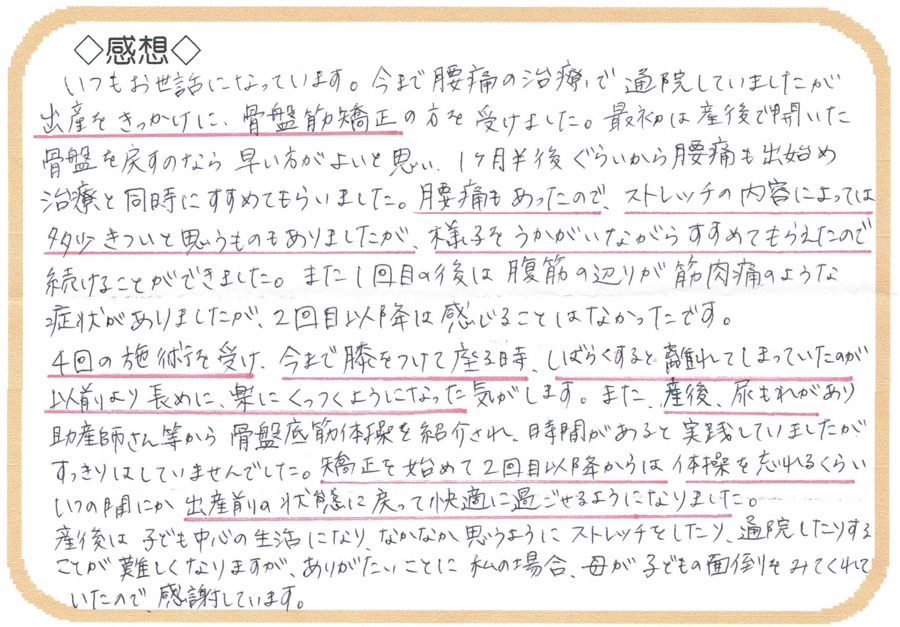 ◇感想◇
いつもお世話になっています。今まで腰痛の治療で通院していましたが
出産をきっかけに、骨盤筋矯正の方を受けました。最初は産後で開いた
骨盤を戻すのなら早い方がよいと思い、1ヶ月半後ぐらいから腰痛も出始め
治療と同時にすすめてもらいました。腰痛もあったので、ストレッチの内容によっては
多少きついと思うものもありましたが、様子をうかがいながらすすめてもらえたので
続けることができました。また1回目の後は腹筋の辺りが筋肉痛のような
症状がありましたが、2回目以降は感じることはなかったです。
4回の施術を受け、今まで膝をつけて座る時、しばらくすると離れてしまっていたのが
以前より長めに、楽にくっつくようになった気がします。また、産後、尿もれがあり
助産師さん等から骨盤底筋体操を紹介され、時間があると実践していましたが
すっきりはしていませんでした。矯正を始めて2回目以降からは体操を忘れるくらい
いつの間にか出産前の状態に戻って快適に過ごせるようになりました。
産後は子ども中心の生活になり、なかなか思うようにストレッチをしたり、通院したりする
ことが難しくなりますが、ありがたいことに私の場合、母が子どもの面倒をみてくれて
いたので、感謝しています。